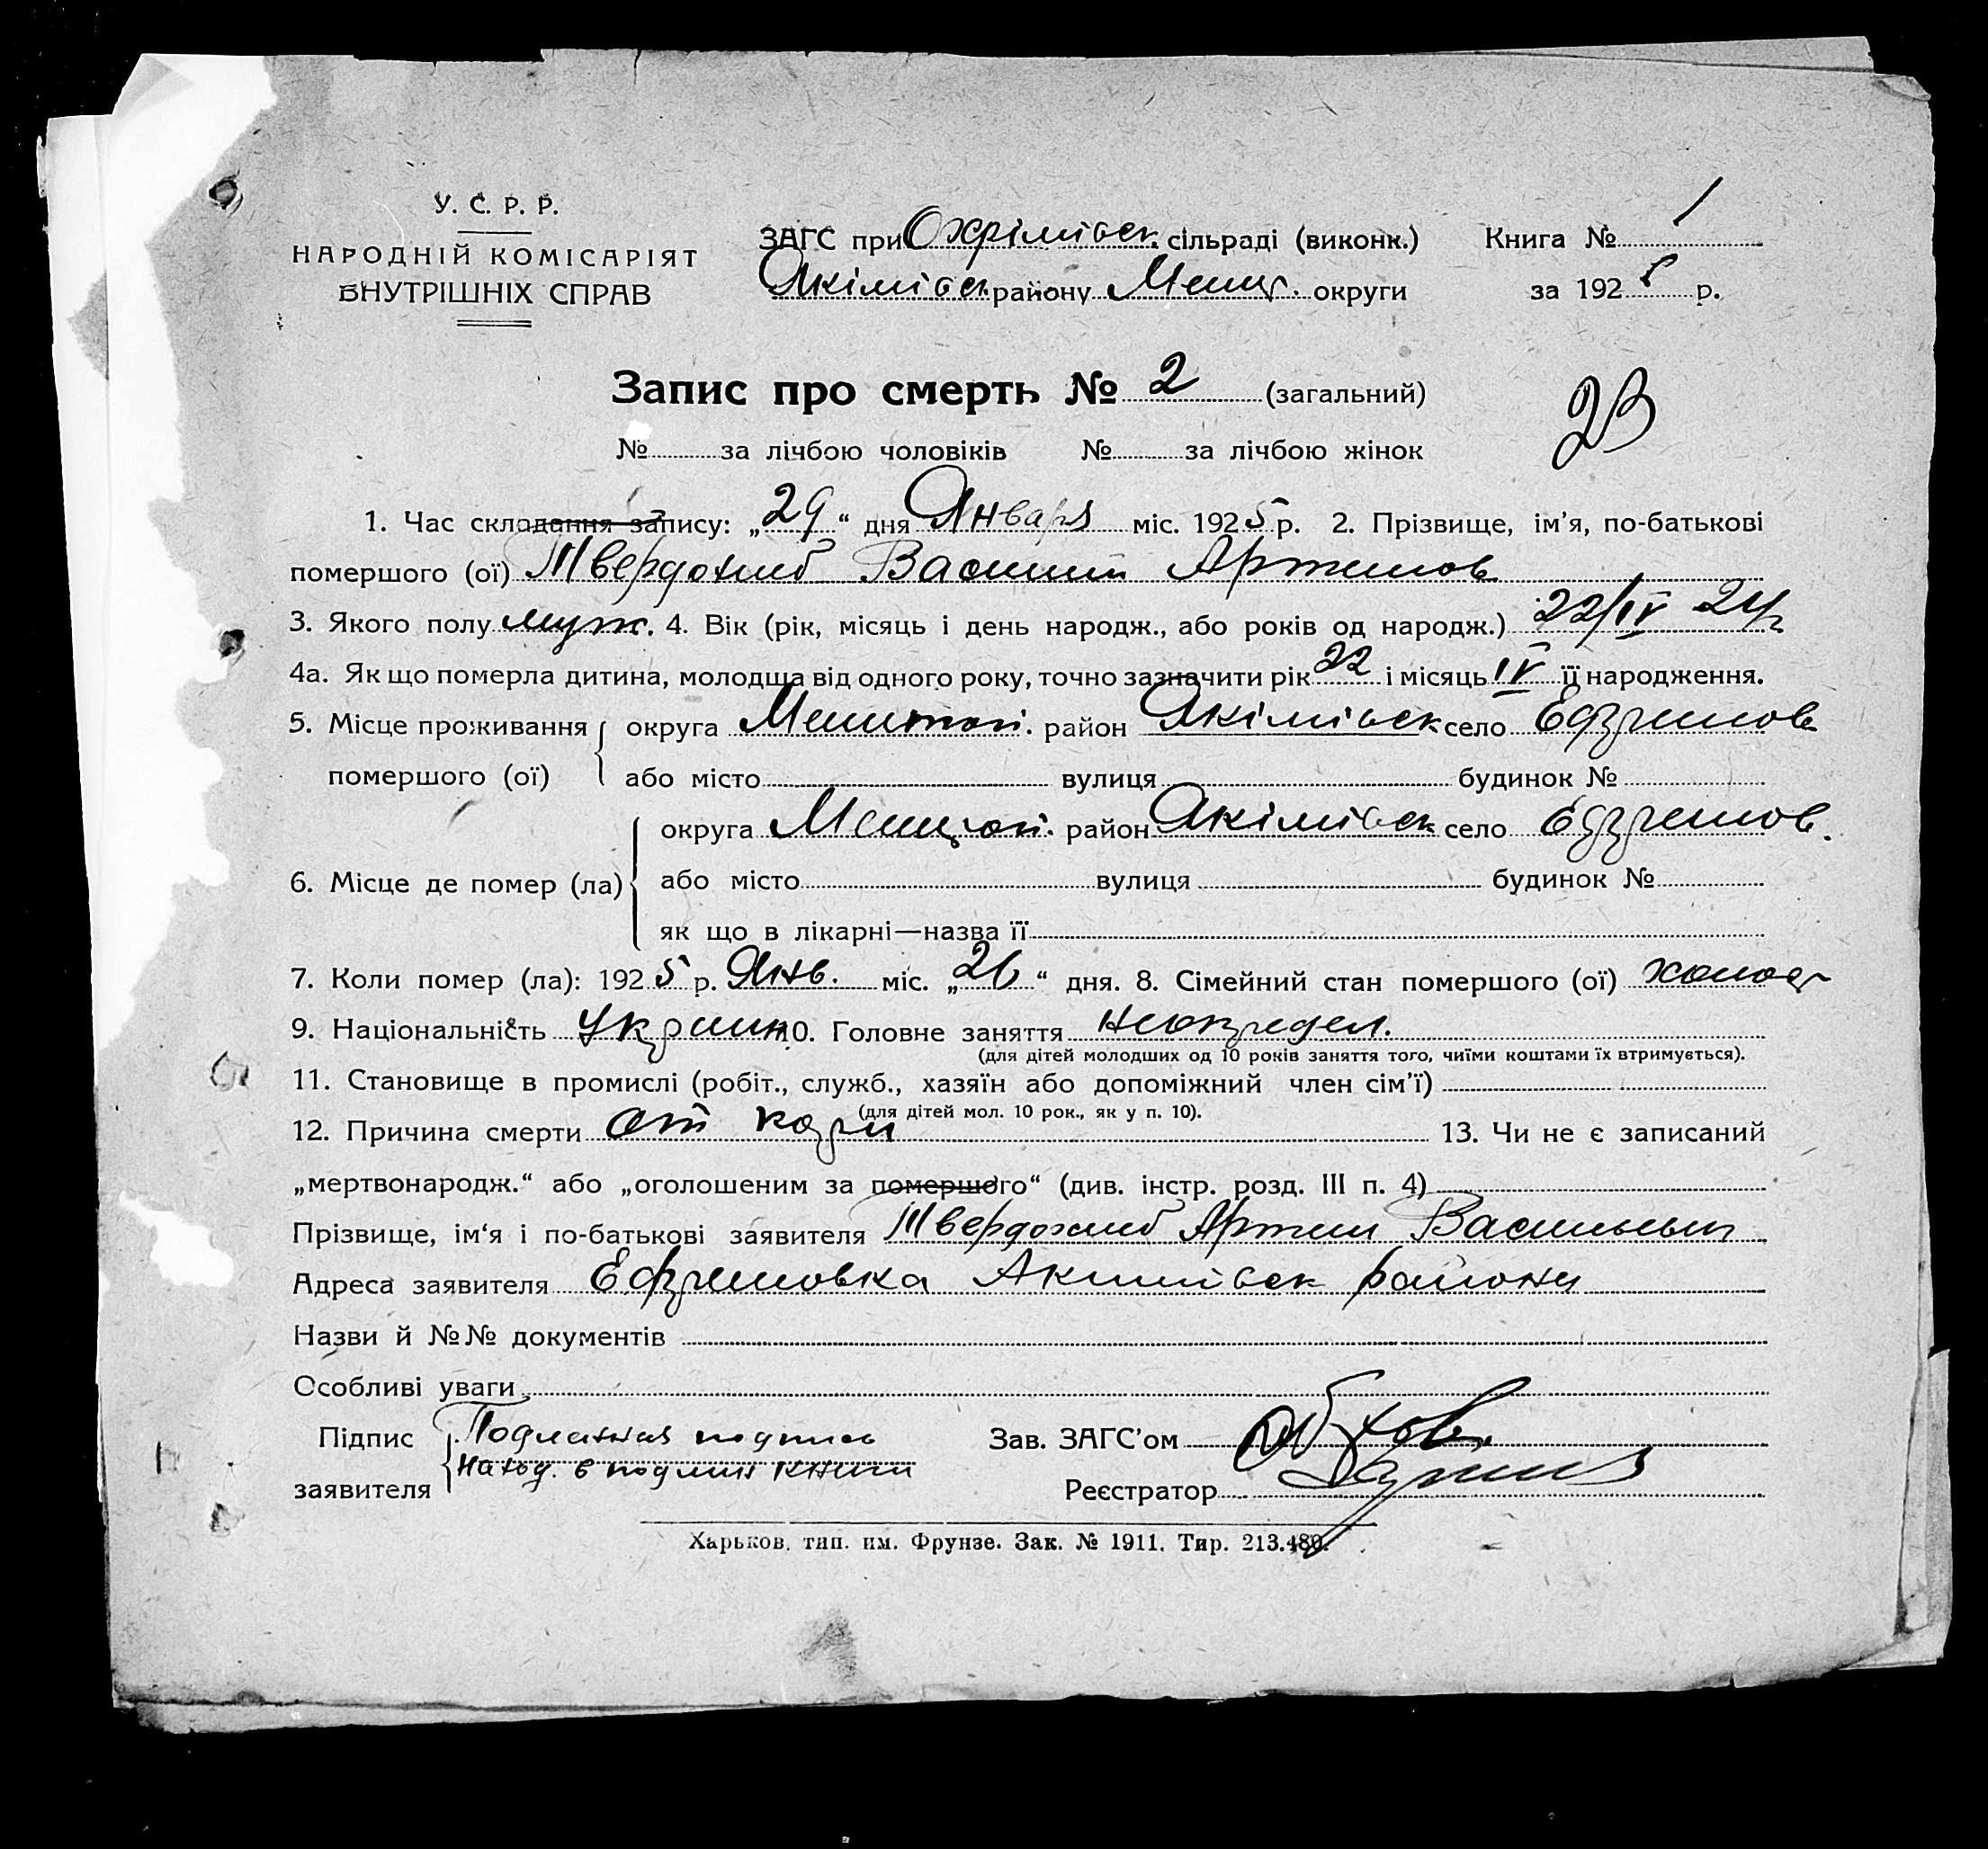 У. С. Р. Р.
НАРОДНІЙ КОМІСАРІЯТ
ВНУТРІШНІХ СПРАВ
ЗАГС при Охрімівск. сільраді (виконк.) Книга № 1
Якімівск району Мелит. округи за 1925 р.
Запис про смерть № 2 (загальний)
23
№ за лічбою чоловіків № за лічбою жінок
1. Час складання запису: „29“ дня Января міс. 1925 р. 2. Прізвище, ім’я, по-батькові
помершого (ої) Твердохлиб Василий Артемов
3. Якого полу муж. 4. Вік (рік, місяць і день народж., або років од народж.) 22/IV 24 г
4а. Як що померла дитина, молодща від одного року, точно зазначити рік 22 і місяць IV її народження.
5. Місце проживання округа Мелитоп. район Якімівск село Ефремов
помершого (ої) або місто вулиця будинок №
округа Мелитоп. район Якімівск село Ефремов.
6. Місце де помер (ла) або місто вулиця будинок №
як що в лікарні—назва її
7. Коли помер (ла): 1925 р. Янв. міс. „26“ дня. 8. Сімейний стан помершого (ої) холост
9. Національність Украин 10. Головне заняття неопредел.
(для дітей молодших од 10 років заняття того, чиїми коштами їх втримується).
11. Становище в промислі (робіт., служб., хазяїн або допоміжний член сім’ї)
(для дітей мол. 10 рок., як у п. 10).
12. Причина смерти от кори 13. Чи не є записаний
„мертвонародж.“ або „оголошеним за помершого“ (див. інстр. розд. III п. 4)
Прізвище, ім‘я і по-батькові заявителя Твердохлиб Артем Васильевич
Адреса заявителя Ефремовка Акимівск району
Назви й №№ документів
Особливі уваги
Підпис Подленная подпись Зав. ЗАГС’ом
наход. в подлин книги
заявителя Реєстратор
Харьков. тип. им. Фрунзе. Зак. № 1911. Тир. 213.480.